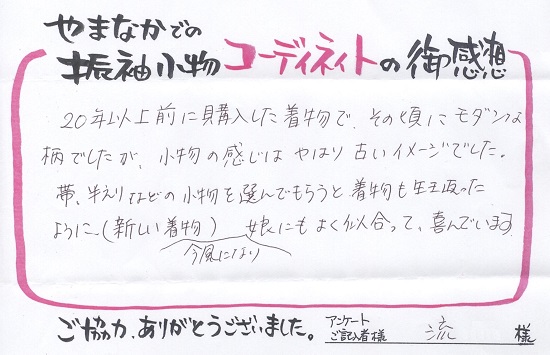 やまなかでの
振袖小物コーディネイトの御感想
20年以上前に購入した着物で、その頃にモダンな
柄でしたが、小物の感じは やはり 古いイメージでした。
帯、半えりなどの小物を選んでもらうと着物も生き返った
ように、(新しい着物) 娘にもよく似合って、喜んでいます
今風になり
ご協力、ありがとうございました。 アンケートご記入者様 流 様